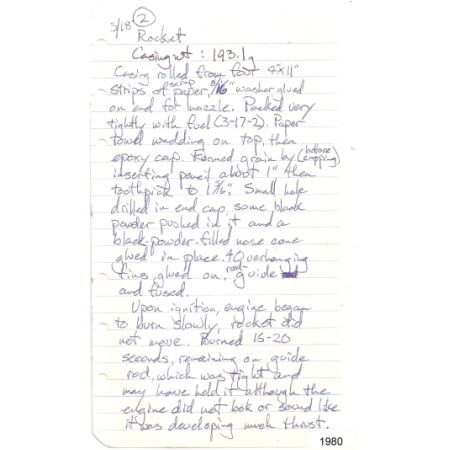 3/18 (2)
Rocket
Casing wt : 193.1g
Casing rolled from four 4"x11"
strips of scrap paper, 9/16" washer glued
on end for nozzle. Packed very
tightly with fuel (3-17-2). Paper
towel wadding on top, then
epoxy cap. Formed grain by (before capping)
inserting pencil about 1" then
toothpick to 1 5/16". Small hole
drilled in end cap, some black
powder pushed in it and a
black-powder-filled nose cone
glued in place. 4 overhanging
fins glued on, rod guide
and fused.
Upon ignition, engine began
to burn slowly, rocket did
not move. Burned 15-20
seconds, remaining on guide
rod, which was tight and
may have held it although the
engine did not look or sound like
it was developing much thrust.
1980